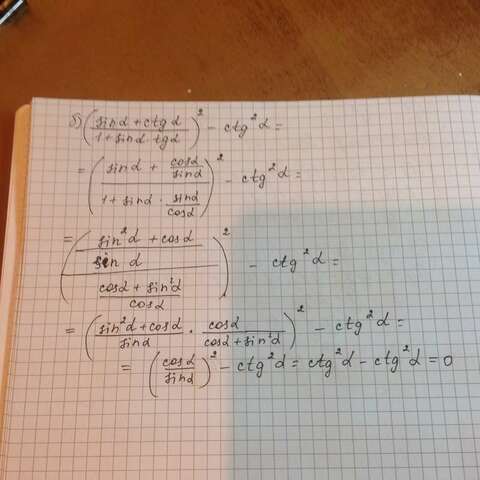 б) ((sinα + ctgα)/(1 + sinα · tgα))² - ctg²α =
= ((sinα + cosα/sinα)/(1 + sinα · sinα/cosα))² - ctg²α =
= (((sin²α + cosα)/sinα)/((cosα + sin²α)/cosα))² - ctg²α =
= ((sin²α + cosα)/sinα · cosα/(cosα + sin²α))² - ctg²α =
= (cosα/sinα)² - ctg²α = ctg²α - ctg²α = 0